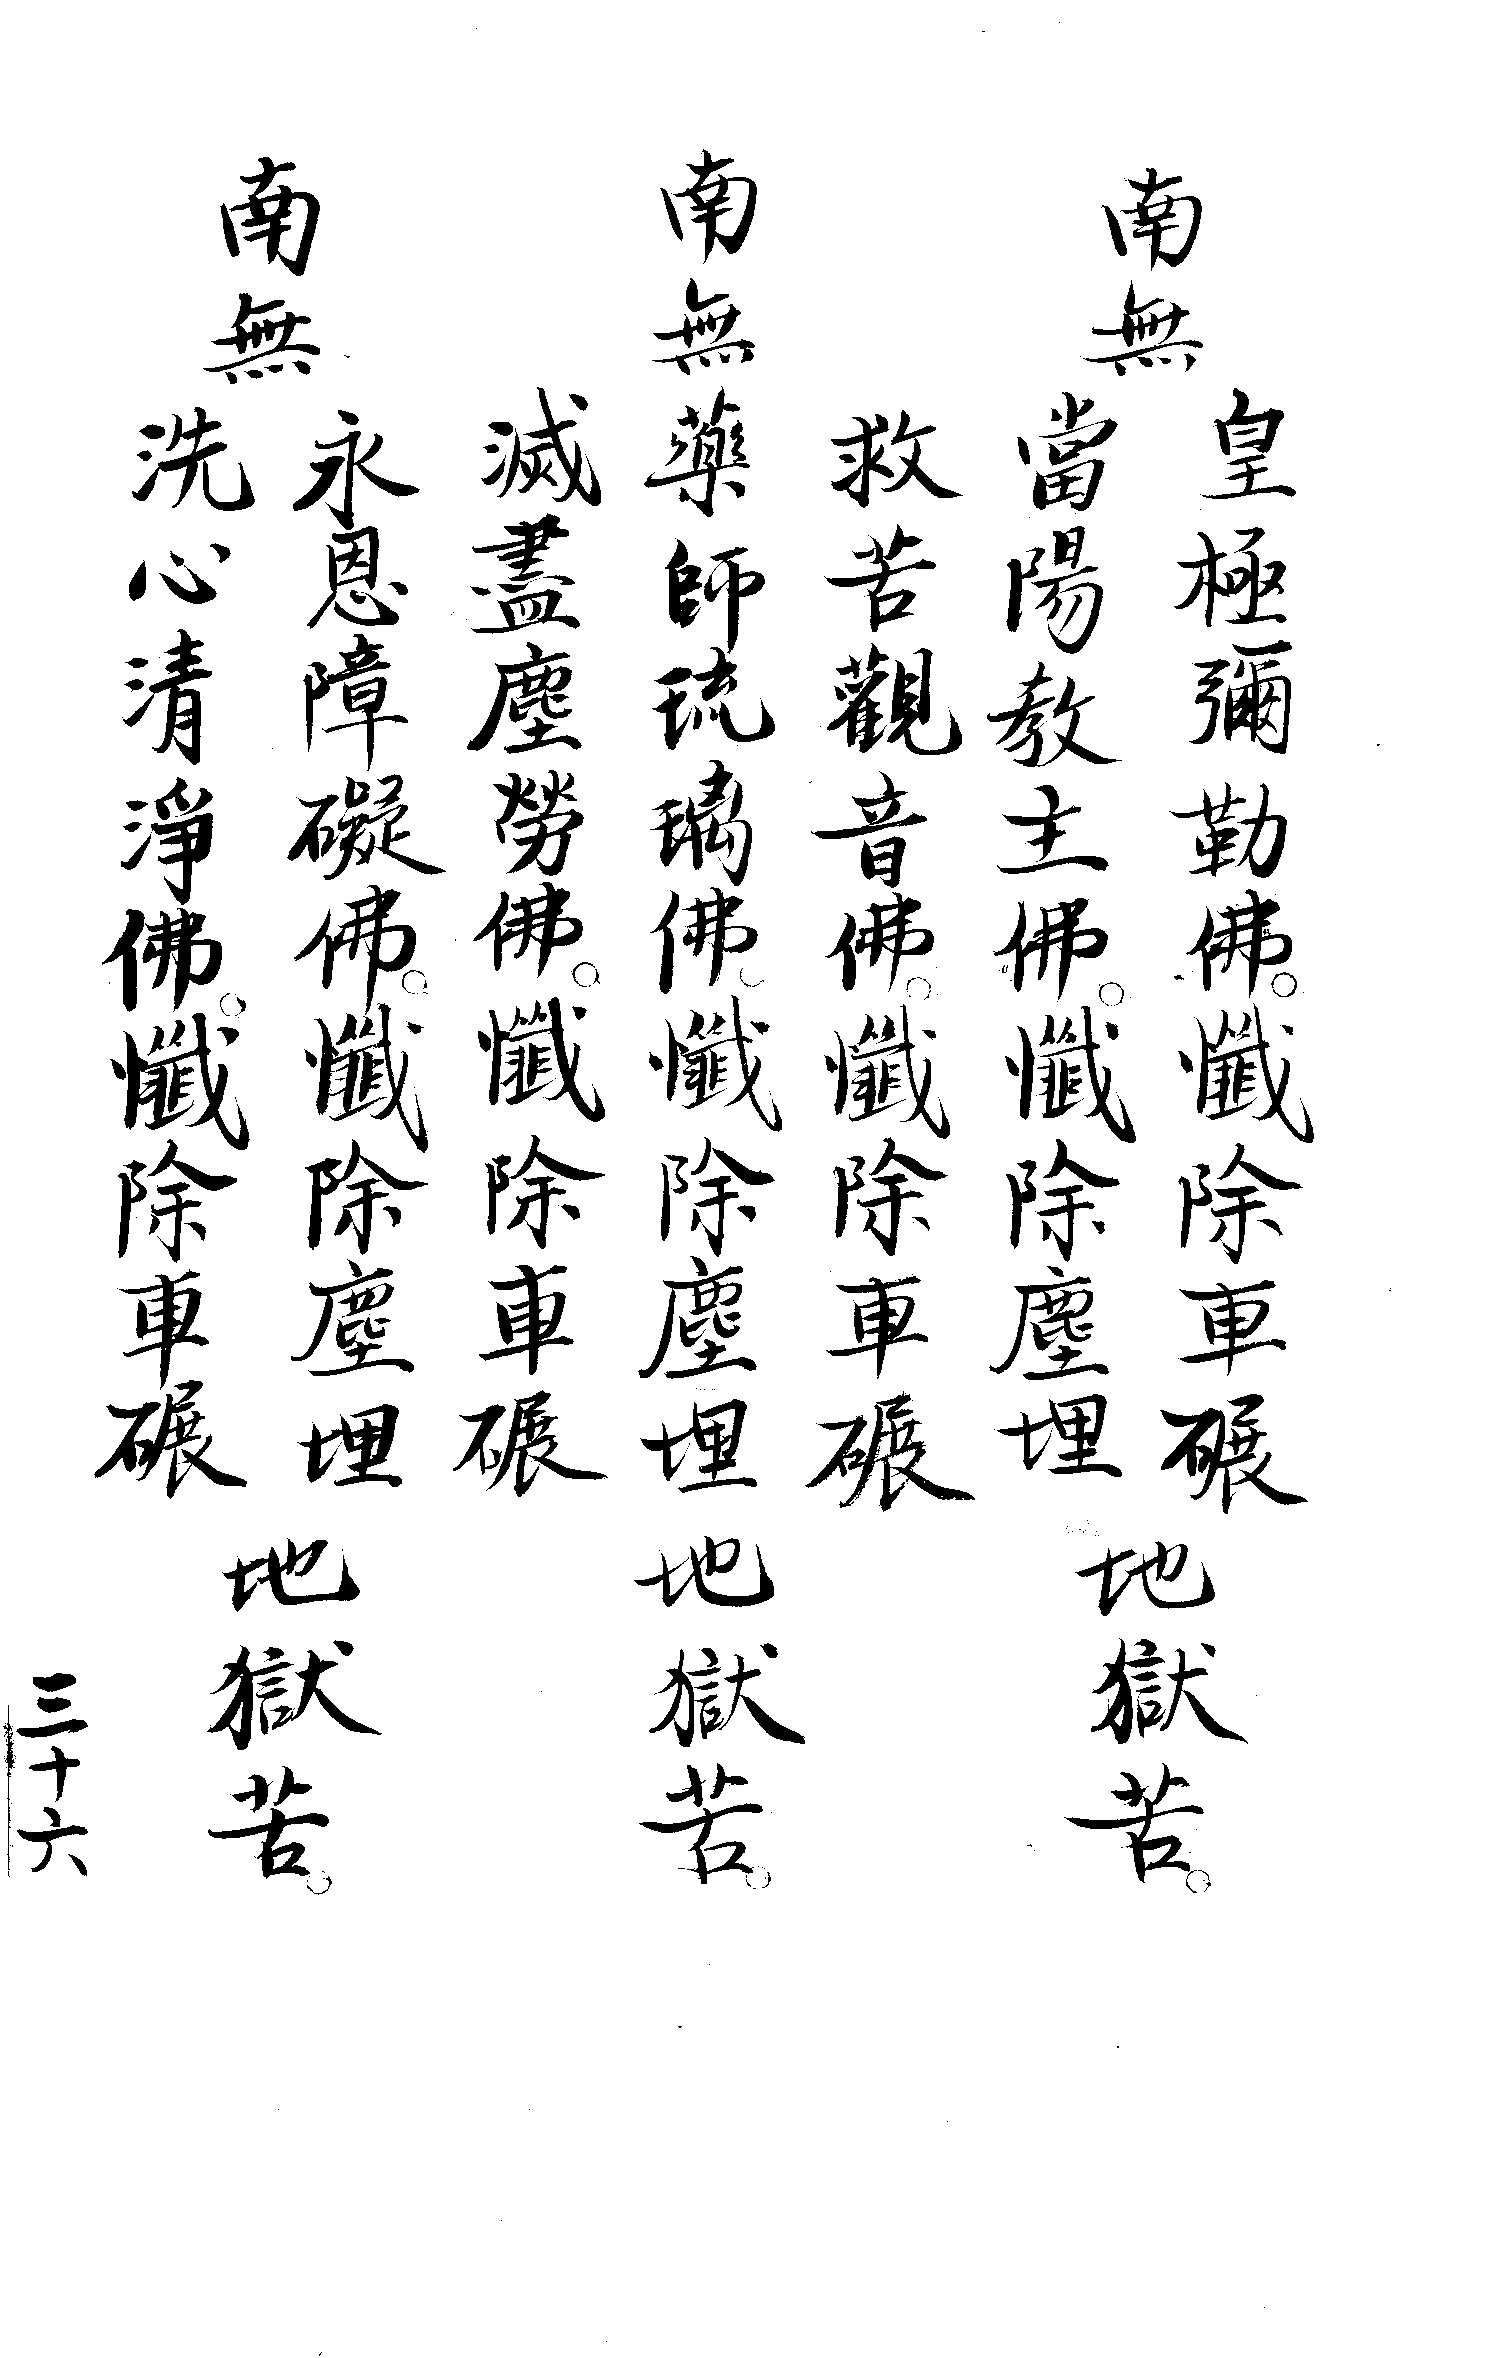 南無
皇極彌勒佛。懺除車碾
當陽教主佛。懺除塵埋
地獄苦。
救苦觀音佛。懺除車碾
南無藥師琉璃佛。懺除塵埋地獄苦。
滅盡塵勞佛。懺除車碾
南無
永恩障礙佛。懺除塵埋
洗心清淨佛。懺除車碾
地獄苦。
三十六